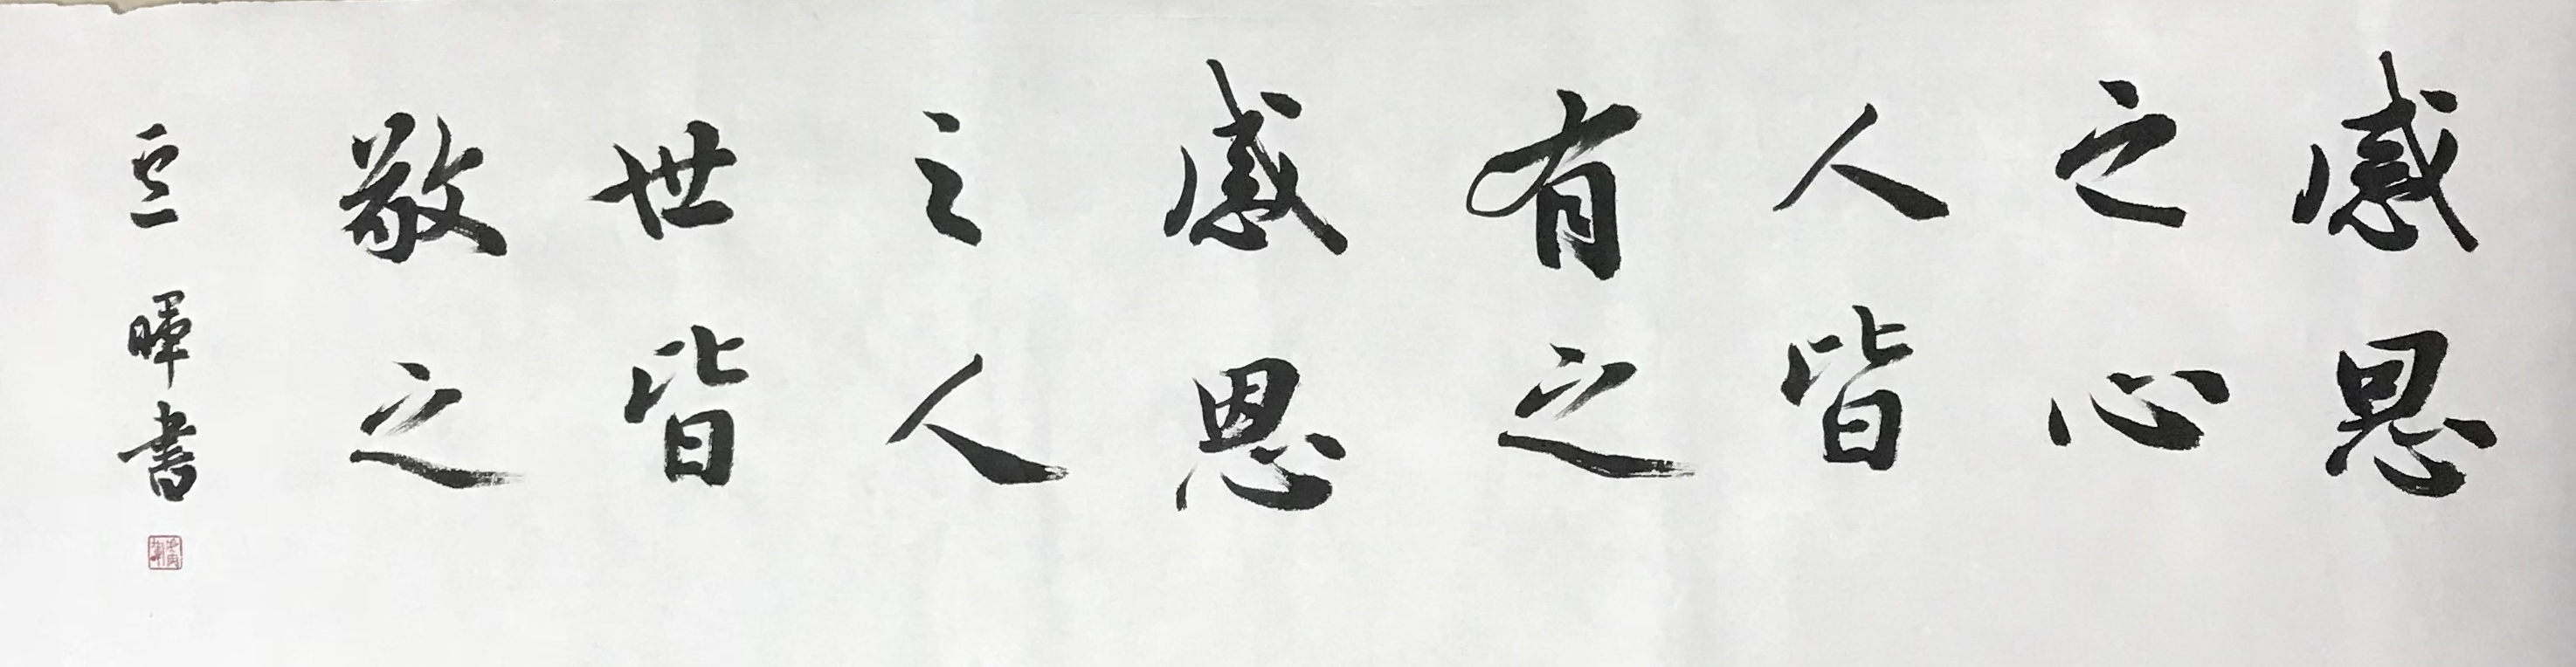 感恩
之心
人皆
有之
感恩
之人
世皆
敬之
暉書